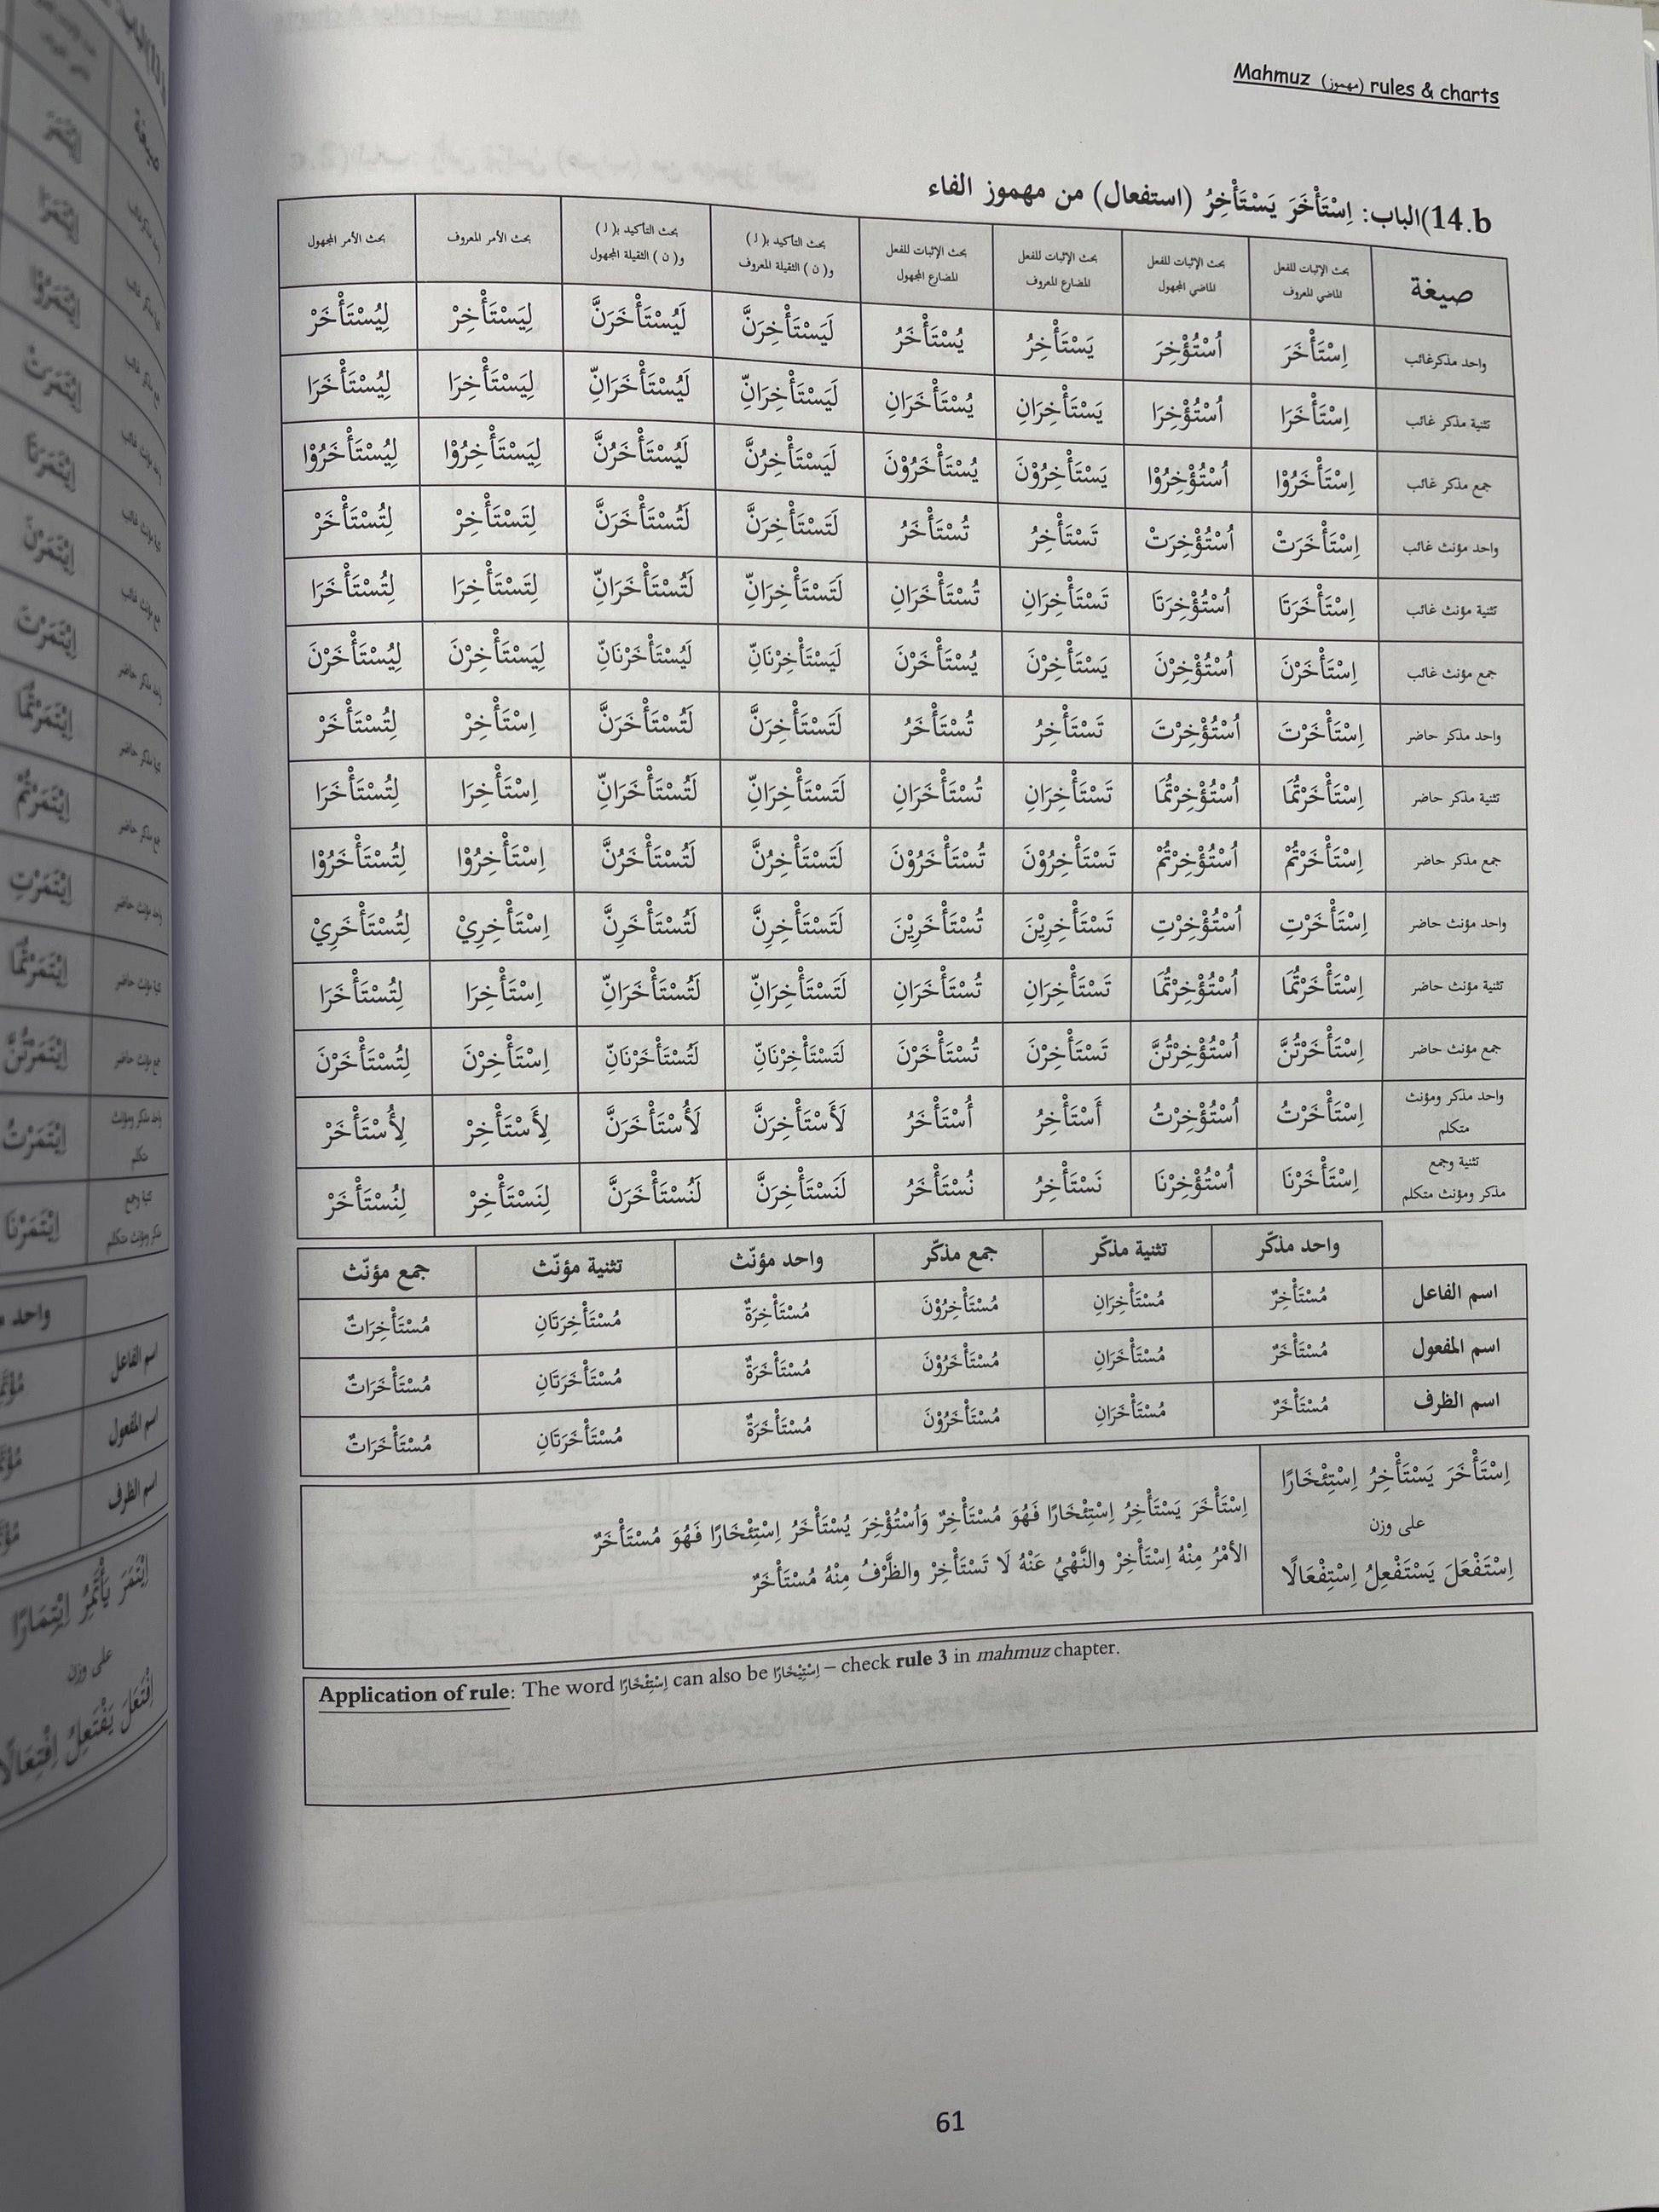 Mahmuz (مهموز) rules & charts
14.b)الباب: اِسْتَأْخَرَ يَسْتَأْخِرُ (استفعال) من مهموز الفاء
صيغة بحث الإثبات للفعل الماضي المعروف بحث الإثبات للفعل الماضي المجهول بحث الإثبات للفعل المضارع المعروف بحث الإثبات للفعل المضارع المجهول بحث التأكيد بـ( لَـ ) و( نّ ) الثقيلة المعروف بحث التأكيد بـ( لَـ ) و( نّ ) الثقيلة المجهول بحث الأمر المعروف بحث الأمر المجهول
واحد مذكرغائب اِسْتَأْخَرَ اُسْتُؤْخِرَ يَسْتَأْخِرُ يُسْتَأْخَرُ لَيَسْتَأْخِرَنَّ لَيُسْتَأْخَرَنَّ لِيَسْتَأْخِرْ لِيُسْتَأْخَرْ
تثنية مذكر غائب اِسْتَأْخَرَا اُسْتُؤْخِرَا يَسْتَأْخِرَانِ يُسْتَأْخَرَانِ لَيَسْتَأْخِرَانِّ لَيُسْتَأْخَرَانِّ لِيَسْتَأْخِرَا لِيُسْتَأْخَرَا
جمع مذكر غائب اِسْتَأْخَرُوْا اُسْتُؤْخِرُوْا يَسْتَأْخِرُوْنَ يُسْتَأْخَرُوْنَ لَيَسْتَأْخِرُنَّ لَيُسْتَأْخَرُنَّ لِيَسْتَأْخِرُوْا لِيُسْتَأْخَرُوْا
واحد مؤنث غائب اِسْتَأْخَرَتْ اُسْتُؤْخِرَتْ تَسْتَأْخِرُ تُسْتَأْخَرُ لَتَسْتَأْخِرَنَّ لَتُسْتَأْخَرَنَّ لِتَسْتَأْخِرْ لِتُسْتَأْخَرْ
تثنية مؤنث غائب اِسْتَأْخَرَتَا اُسْتُؤْخِرَتَا تَسْتَأْخِرَانِ تُسْتَأْخَرَانِ لَتَسْتَأْخِرَانِّ لَتُسْتَأْخَرَانِّ لِتَسْتَأْخِرَا لِتُسْتَأْخَرَا
جمع مؤنث غائب اِسْتَأْخَرْنَ اُسْتُؤْخِرْنَ يَسْتَأْخِرْنَ يُسْتَأْخَرْنَ لَيَسْتَأْخِرْنَانِّ لَيُسْتَأْخَرْنَانِّ لِيَسْتَأْخِرْنَ لِيُسْتَأْخَرْنَ
واحد مذكر حاضر اِسْتَأْخَرْتَ اُسْتُؤْخِرْتَ تَسْتَأْخِرُ تُسْتَأْخَرُ لَتَسْتَأْخِرَنَّ لَتُسْتَأْخَرَنَّ اِسْتَأْخِرْ لِتُسْتَأْخَرْ
تثنية مذكر حاضر اِسْتَأْخَرْتُمَا اُسْتُؤْخِرْتُمَا تَسْتَأْخِرَانِ تُسْتَأْخَرَانِ لَتَسْتَأْخِرَانِّ لَتُسْتَأْخَرَانِّ اِسْتَأْخِرَا لِتُسْتَأْخَرَا
جمع مذكر حاضر اِسْتَأْخَرْتُمْ اُسْتُؤْخِرْتُمْ تَسْتَأْخِرُوْنَ تُسْتَأْخَرُوْنَ لَتَسْتَأْخِرُنَّ لَتُسْتَأْخَرُنَّ اِسْتَأْخِرُوْا لِتُسْتَأْخَرُوْا
واحد مؤنث حاضر اِسْتَأْخَرْتِ اُسْتُؤْخِرْتِ تَسْتَأْخِرِيْنَ تُسْتَأْخَرِيْنَ لَتَسْتَأْخِرِنَّ لَتُسْتَأْخَرِنَّ اِسْتَأْخِرِيْ لِتُسْتَأْخَرِيْ
تثنية مؤنث حاضر اِسْتَأْخَرْتُمَا اُسْتُؤْخِرْتُمَا تَسْتَأْخِرَانِ تُسْتَأْخَرَانِ لَتَسْتَأْخِرَانِّ لَتُسْتَأْخَرَانِّ اِسْتَأْخِرَا لِتُسْتَأْخَرَا
جمع مؤنث حاضر اِسْتَأْخَرْتُنَّ اُسْتُؤْخِرْتُنَّ تَسْتَأْخِرْنَ تُسْتَأْخَرْنَ لَتَسْتَأْخِرْنَانِّ لَتُسْتَأْخَرْنَانِّ اِسْتَأْخِرْنَ لِتُسْتَأْخَرْنَ
واحد مذكر ومؤنث متكلم اِسْتَأْخَرْتُ اُسْتُؤْخِرْتُ أَسْتَأْخِرُ أُسْتَأْخَرُ لَأَسْتَأْخِرَنَّ لَأُسْتَأْخَرَنَّ لِأَسْتَأْخِرْ لِأُسْتَأْخَرْ
تثنية وجمع مذكر ومؤنث متكلم اِسْتَأْخَرْنَا اُسْتُؤْخِرْنَا نَسْتَأْخِرُ نُسْتَأْخَرُ لَنَسْتَأْخِرَنَّ لَنُسْتَأْخَرَنَّ لِنَسْتَأْخِرْ لِنُسْتَأْخَرْ
واحد مذكّر تثنية مذكّر جمع مذكّر واحد مؤنّث تثنية مؤنّث جمع مؤنّث
اسم الفاعل مُسْتَأْخِرٌ مُسْتَأْخِرَانِ مُسْتَأْخِرُوْنَ مُسْتَأْخِرَةٌ مُسْتَأْخِرَتَانِ مُسْتَأْخِرَاتٌ
اسم المفعول مُسْتَأْخَرٌ مُسْتَأْخَرَانِ مُسْتَأْخَرُوْنَ مُسْتَأْخَرَةٌ مُسْتَأْخَرَتَانِ مُسْتَأْخَرَاتٌ
اسم الظرف مُسْتَأْخَرٌ مُسْتَأْخَرَانِ مُسْتَأْخَرُوْنَ مُسْتَأْخَرَةٌ مُسْتَأْخَرَتَانِ مُسْتَأْخَرَاتٌ
اِسْتَأْخَرَ يَسْتَأْخِرُ اِسْتِئْخَارًا
على وزن
اِسْتَفْعَلَ يَسْتَفْعِلُ اِسْتِفْعَالًا
اِسْتَأْخَرَ يَسْتَأْخِرُ اِسْتِئْخَارًا فَهُوَ مُسْتَأْخِرٌ وَاُسْتُؤْخِرَ يُسْتَأْخَرُ اِسْتِئْخَارًا فَهُوَ مُسْتَأْخَرٌ
الأمْرُ مِنْهُ اِسْتَأْخِرْ والنَّهْيُ عَنْهُ لَا تَسْتَأْخِرْ والظَّرْفُ مِنْهُ مُسْتَأْخَرٌ
Application of rule: The word اِسْتِئْخَارًا can also be اِسْتِيْخَارًا – check rule 3 in mahmuz chapter.
61